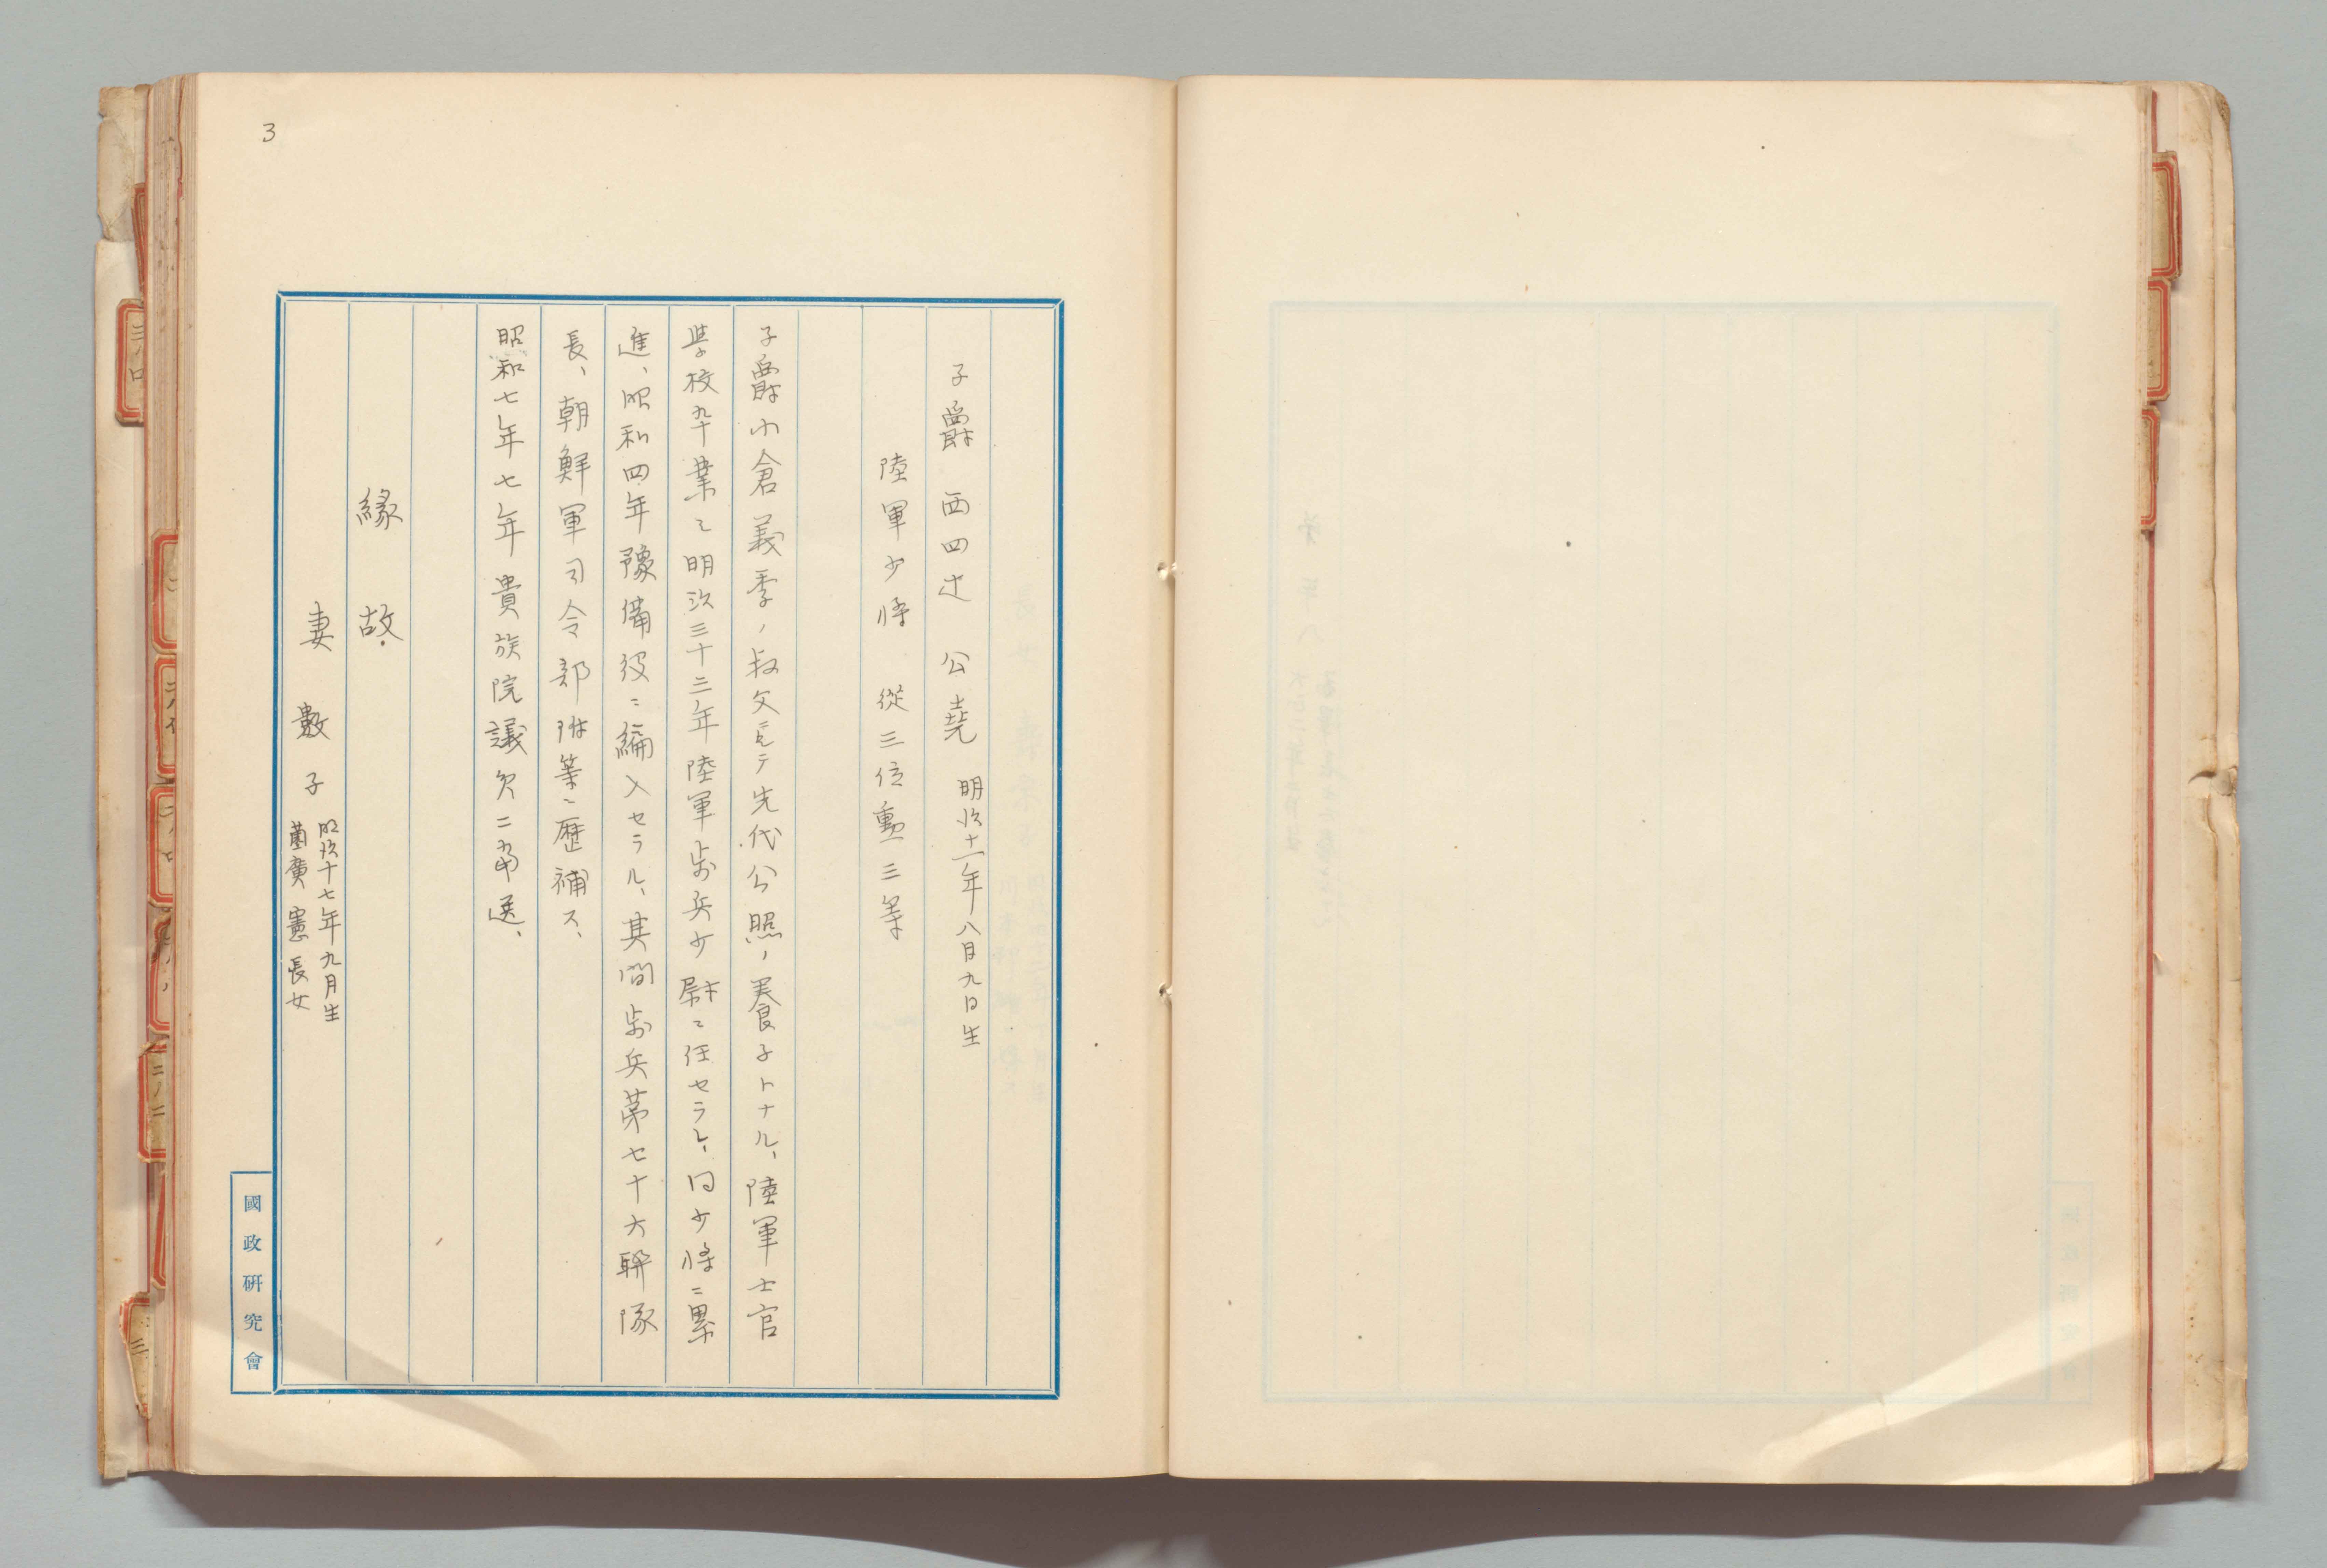 3
子爵 西四辻 公堯 明治十一年八月九日生
陸軍少将 從三位勳三等
子爵小倉義季ノ叔父ニシテ先代公照ノ養子トナル、陸軍士官
学校卆業シ明治三十三年陸軍歩兵少尉ニ任セラレ、同少将ニ累
進、昭和四年豫備役ニ編入セラル、其間歩兵第七十六聯隊
長、朝鮮軍司令部附等ニ歴補ス、
昭和七年七年貴族院議欠ニ当選、
緣故
妻 數子 明治十七年九月生
薗廣憲長女
國政研究會
三ノ口
二ノ二